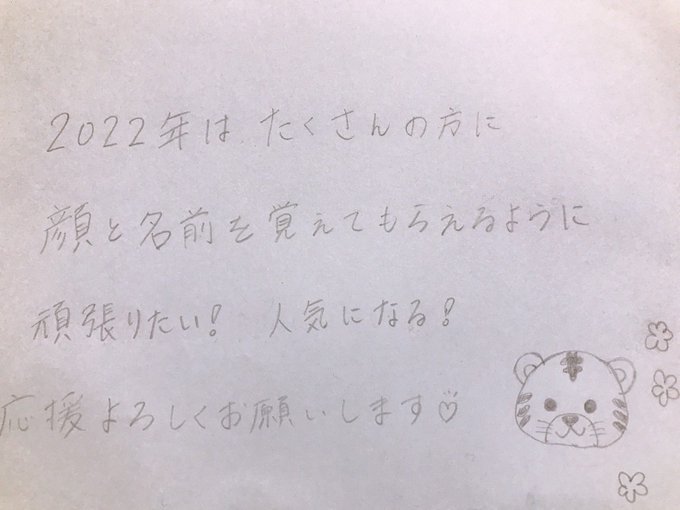 2022年は たくさんの方に
顔と名前を覚えてもらえるように
頑張りたい! 人気になる!
応援よろしくお願いします♡